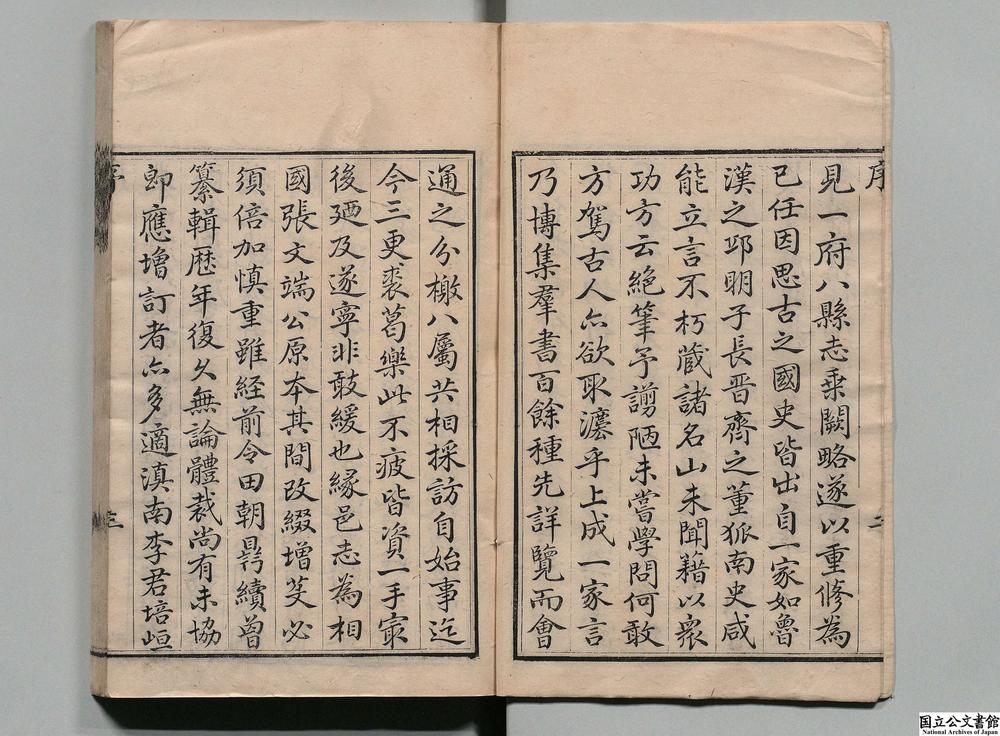 序
二
見一府八縣志乘闕略遂以重修為
已任因思古之國史皆出自一家如魯
漢之邱明子長晋齊之董狐南史咸
能立言不朽藏諸名山未聞藉以衆
功方云絕筆予謭陋未嘗學問何敢
方駕古人亦欲取灋乎上成一家言
乃博集羣書百餘種先詳覽而會
通之分檄八屬共相採訪自始事迄
今三更裘葛樂此不疲皆資一手㝡
後廼及遂寧非敢緩也緣邑志為相
國張文端公原本其間改綴增芟必
須倍加慎重雖経前令田朝鼎續曽
纂輯歴年復久無論體裁尚有未協
即應增訂者亦多適滇南李君培峘
序
三
国立公文書館
National Archives of Japan